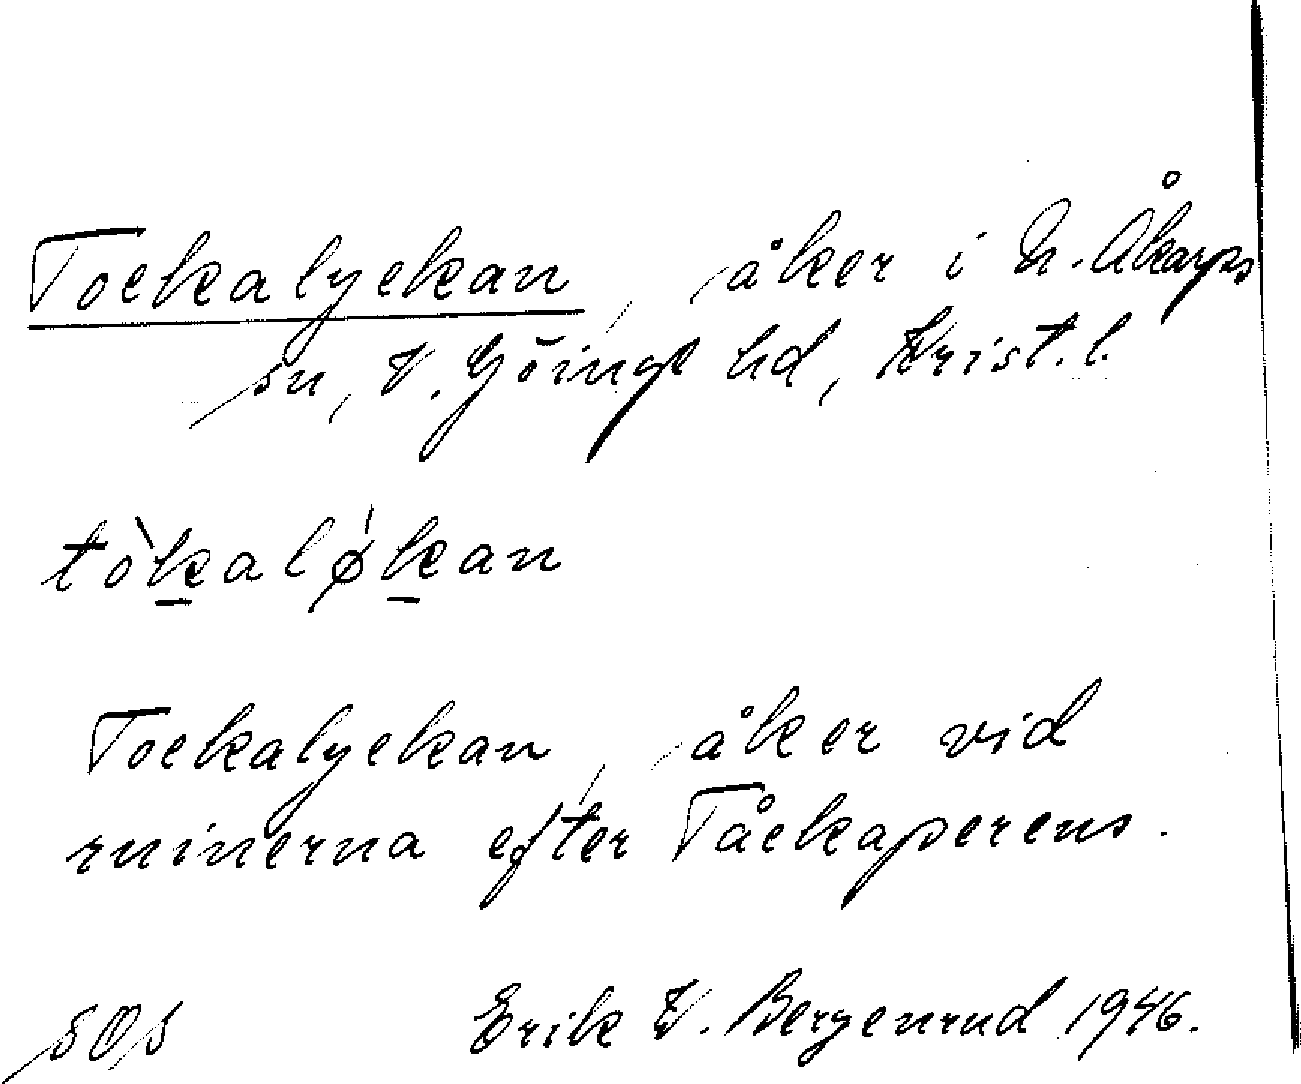 Tockalyckan, åker i N. Åkarps
sn, V. Göinge hd, Krist. l.
tòkalǿkan
Tockalyckan, åker vid
ruinerna efter Tåckaperens.
Erik W. Bergenrud 1946.